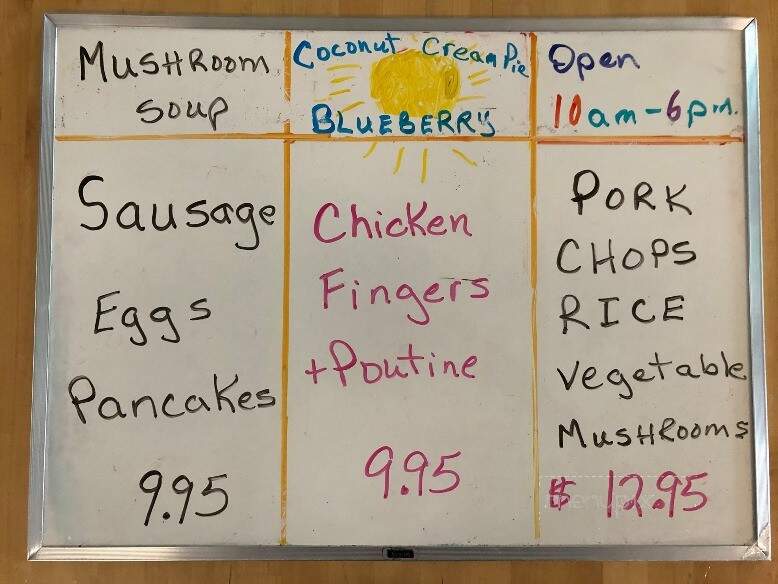 Mushroom
Soup
Coconut Cream Pie
BLUEBERRY
Open
10am-6pm.
Sausage
Eggs
Pancakes
9.95
Chicken
Fingers
+Poutine
9.95
PORK
CHOPS
RICE
Vegetable
Mushrooms
$ 12.95